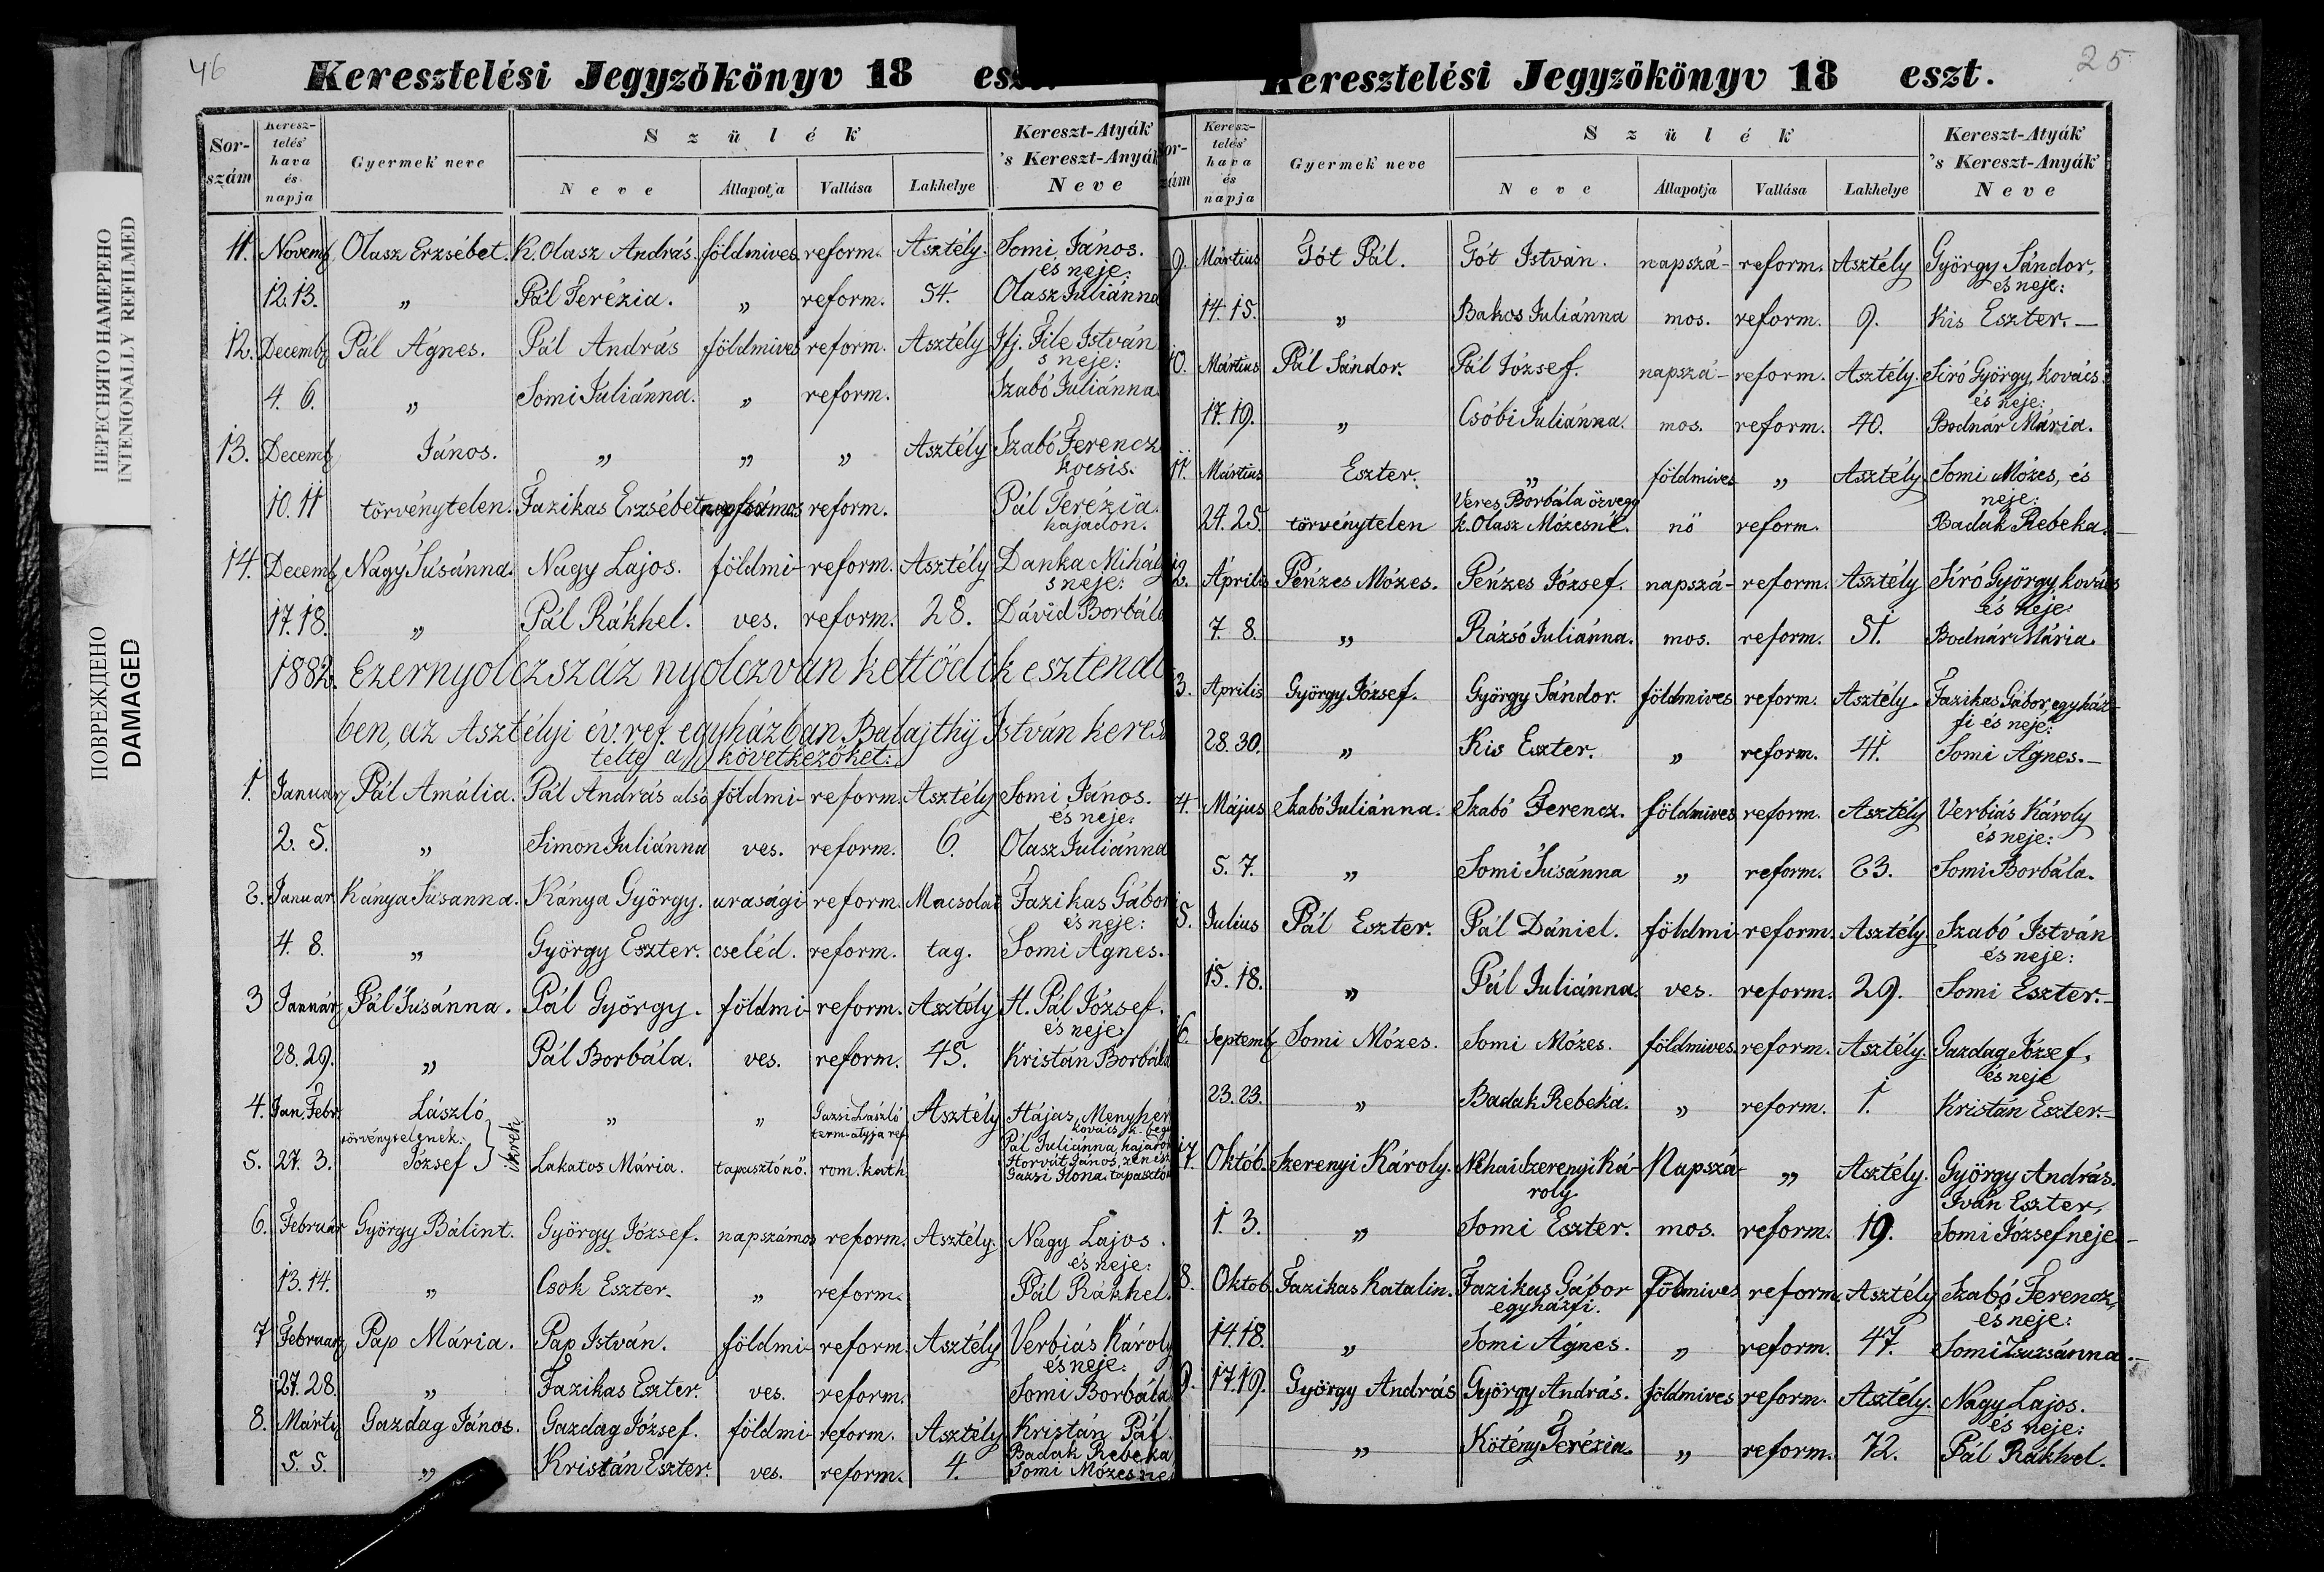 46
Keresztelési Jegyzökönyv 18
Sor-szám Keresz-telés' hava és napja Gyermek' neve Szülék' Neve Állapotja Vallása Lakhelye Kereszt-Atyák 's Kereszt-Anyák Neve
11. Novemb Olasz Erzsébet. K. Olasz András. földmives reform. Asztély. Somi János.
és neje:
12.13. „ Pál Terézia. „ reform. 54. Olasz Juliánna
12. Decemb Pál Ágnes. Pál András földmives reform. Asztély Ifj. File István
s neje:
4. 6. „ Somi Juliánna. „ reform. Szabó Juliánna.
13. Decemb János. „ „ „ Asztély Szabó Ferencz
kocsis.
10. 11 törvénytelen. Fazikas Erzsébet napszámos reform. Pál Terézia.
hajadon.
14. Decemb Nagy Súsánna. Nagy Lajos. földmi- reform. Asztély Danka Mihály
s neje:
17. 18. „ Pál Rákhel. ves. reform. 28. Dávid Borbála
1882. Ezernyolczszáz nyolczvan kettödik esztendö
ben, az Asztélyi év. ref. egyházban Balajthÿ István keresz
telte a következőket:
1. Január Pál Amália. Pál András alsó földmi- reform. Asztély Somi János.
és neje:
2. 5. „ Simon Juliánna ves. reform. 6. Olasz Juliánna
2. Januar Kánya Súsanna. Kánya György. urasági reform. Macsolai Fazikas Gábor
és neje:
4. 8. „ György Eszter. cseléd. reform. tag. Somi Ágnes.
3 Január Pál Súsánna. Pál György. földmi- reform. Asztély H. Pál József.
és neje:
28. 29. „ Pál Borbála. ves. reform. 45. Kristán Borbála
4. Jan. Febr. László „ „ Gazsi László Asztély Hájas Menyhér
törvénytelenek. } ikrek term-atyja ref.
Pál Juliánna, hajadon
5. 27. 3. József Lakatos Mária. tapasztónő. rom. kath. Horvát János, zenész
Gazsi Ilona. tapasztó
6. Február György Bálint. György József. napszámos reform. Asztély. Nagy Lajos.
és neje:
13. 14. „ Csok Eszter. „ reform. Pál Rákhel.
7 Február Pap Mária. Pap István. földmi- reform. Asztély Verbiás Károly
és neje:
27. 28. „ Fazikas Eszter. ves. reform. Somi Borbála
8. Márty Gazdag János. Gazdag József. földmi- reform. Asztély Kristán Pál.
Badak Rebeka
5. 5. „ Kristán Eszter. ves. reform. 4. Somi Mózesne
25
Keresztelési Jegyzökönyv 18 eszt.
Keresz-telés' hava és napja Gyermek' neve Szülék' Neve Állapotja Vallása Lakhelye Kereszt-Atyák' 's Kereszt-Anyák' Neve
9. Mártius Tót Pál. Tót István. napszá- reform. Asztély György Sándor,
és neje:
14. 15. „ Bakos Juliánna mos. reform. 9. Kis Eszter.—
10. Mártius Pál Sándor. Pál József. napszá- reform. Asztély. Siró György, kovács.
és neje:
17. 19. „ Csóbi Juliánna. mos. reform. 40. Bodnár Mária.
11. Mártius Eszter. „ földmives „ Asztély. Somi Mózes, és
Veres Borbála özvegy neje:
24. 25. törvénytelen k. Olasz Mózesné. nö reform. Badak Rebeka.—
12. Április Pénzes Mózes. Pénzes József. napszá- reform. Asztély Siró György, kovács
és neje:
7 8. „ Rázsó Juliánna. mos. reform. 51. Bodnár Mária.
3. Aprilis György József. György Sándor. földmives reform. Asztély. Fazikas Gábor, egyház-
fi és neje:
28. 30. „ Kis Eszter. „ reform. 41. Somi Ágnes.—
4. Május Szabó Juliánna. Szabó Ferencz. földmives reform. Asztély Verbiás Károly
és neje:
5. 7. „ Somi Súsánna „ reform. 23. Somi Borbála.
5. Julius Pál Eszter. Pál Dániel. földmi- reform. Asztély. Szabó István
és neje:
15. 18. „ Pál Juliánna. ves. reform. 29. Somi Eszter.—
6. Septemb Somi Mózes. Somi Mózes. földmives. reform. Asztély. Gazdag József,
és neje
23. 23. „ Badak Rebeka. „ reform. 1. Kristán Eszter.—
17. Októb. Szerenyi Károly. Néhai Szerenyi Ká- Napszá- „ Asztély. György András.
roly. Iván Eszter,
1. 3. „ Somi Eszter. mos. reform. 19. Somi József neje—
8. Oktob. Fazikas Katalin. Fazikas Gábor Földmives reform. Asztély Szabó Ferencz,
egyházfi. és neje:
14. 18. „ Somi Ágnes. „ reform. 47. Somi Zsuzsánna.—
9. 17. 19. György András György András. földmives reform. Asztély. Nagy Lajos.
és neje:
„ Kötény Terézia. „ reform. 72. Pál Rákhel.
ПЕРЕСНЯТО НАМЕРЕНО
INTENIONALLY REFILMED
ПОВРЕЖДЕНО
DAMAGED